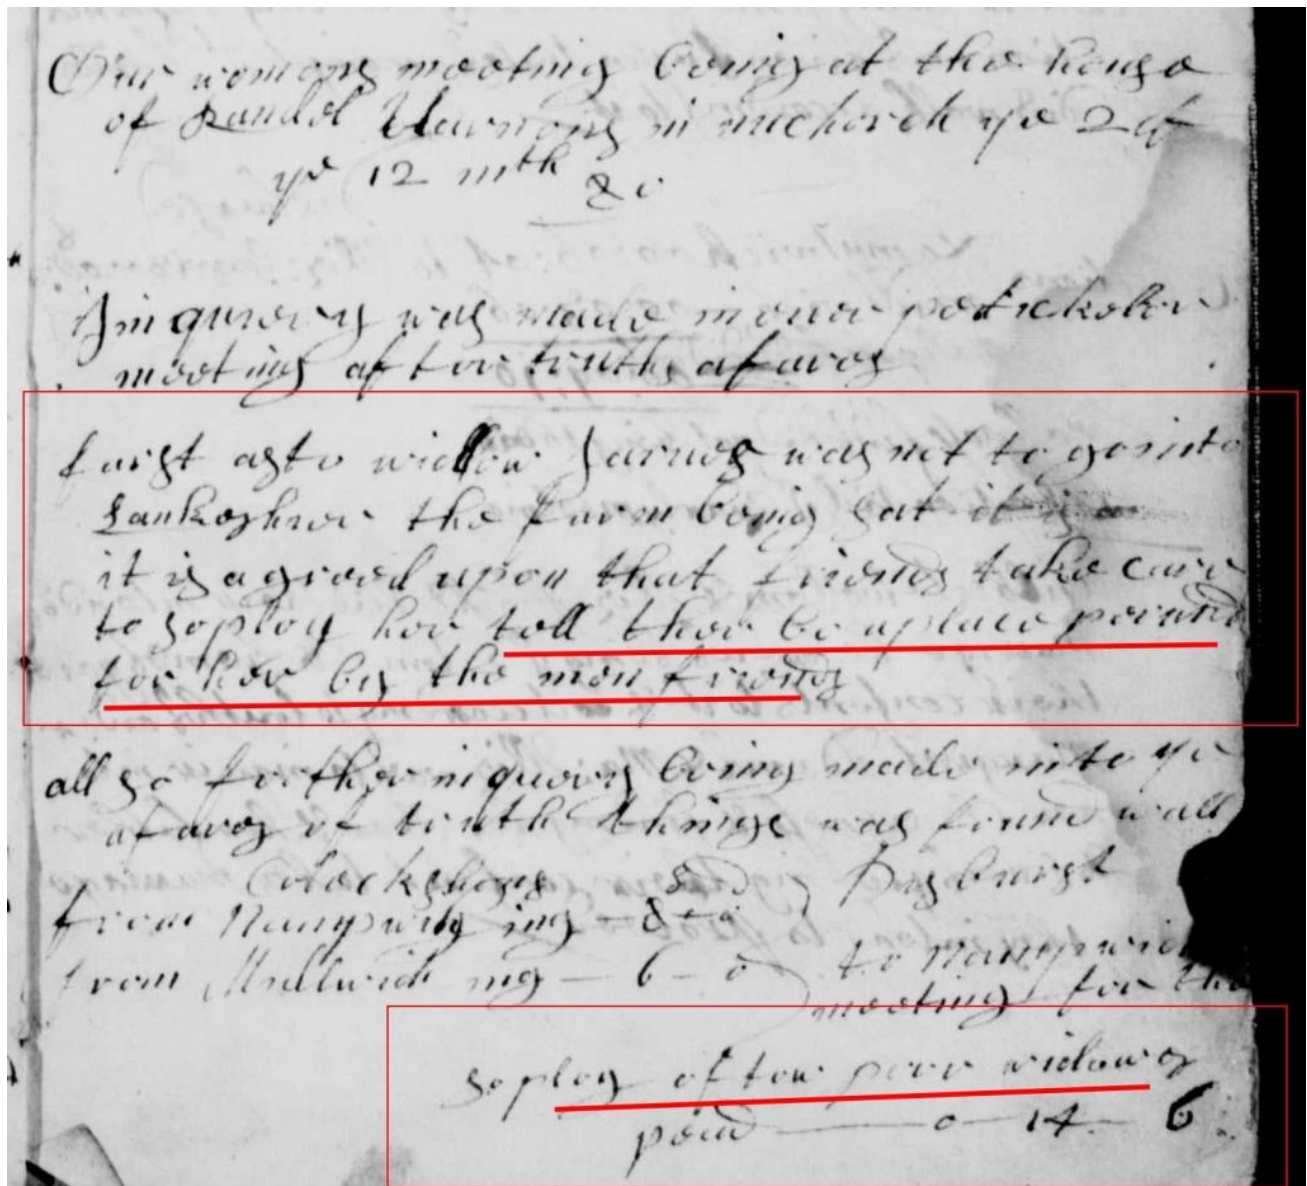 Our womons meeting being at the house
of Randol Vernons in ye 2 of
ye 12 mth 80
Jinquirery was made in over
meeting after truths afares
furst as to widow was not to go into
Lankeshier the farm being sat it is
it is agreed upon that friends take care
to soploy her tell ther be aplace
for her by the men friends
all so further inquery being made into ye
afares of truth things was found wall
Colockshons Disburst
from Nampwig ing 8 0
from ing 6 0 to
meeting for the
soploy of tow poor widowes
0 14 6